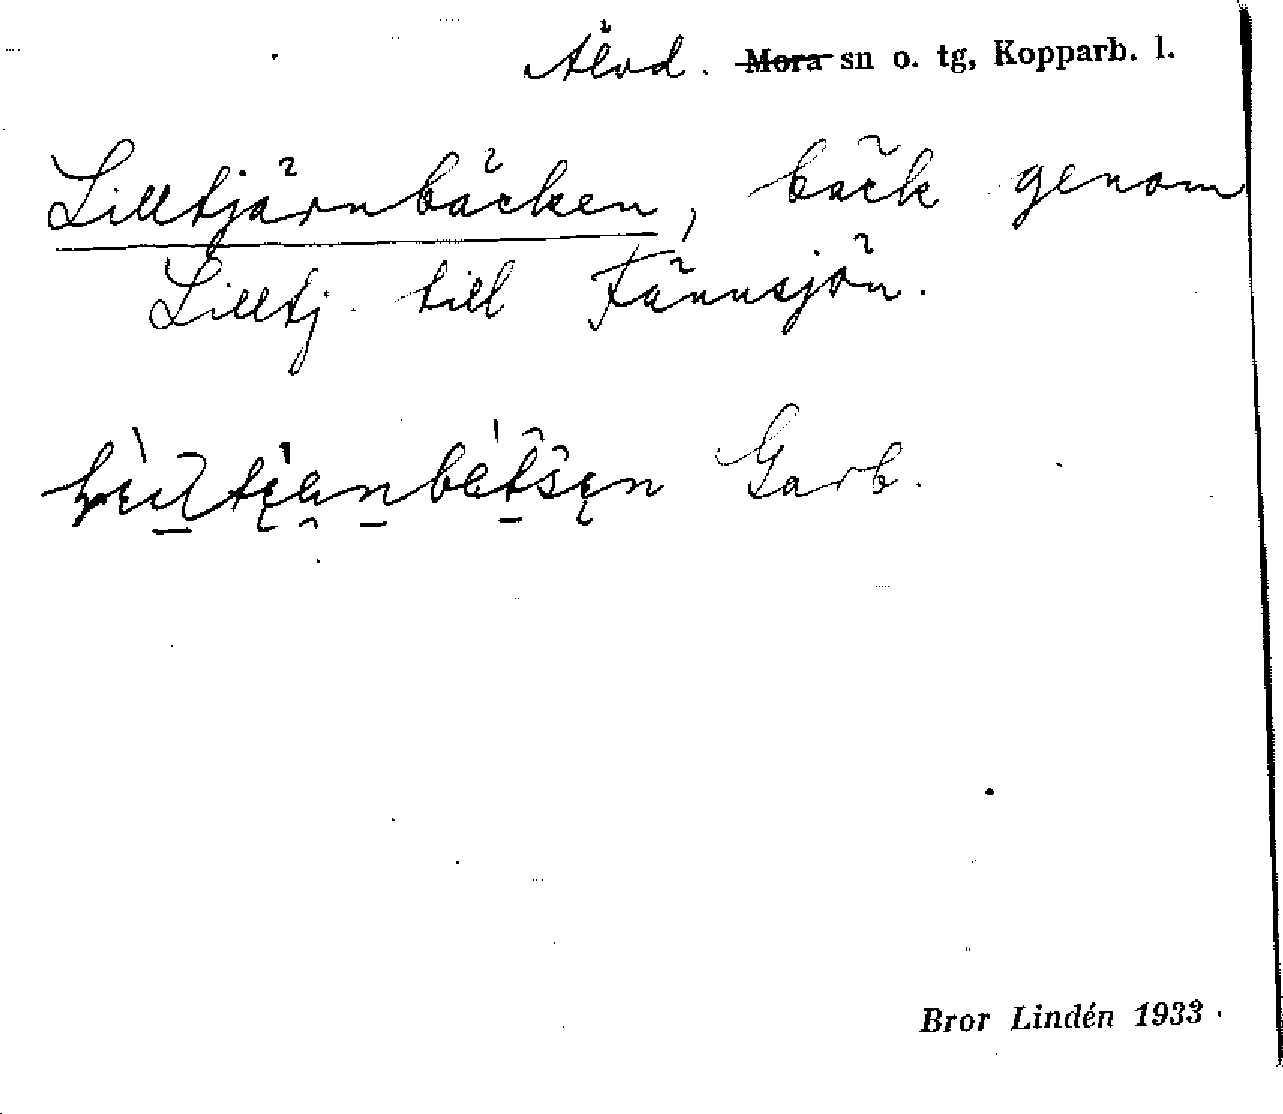 Älvd. Mora sn o. tg, Kopparb. l.
Lilltjärnbäcken, bäck genom
Lilltj. till Fännsjön.
Garb.
Bror Lindén 1933